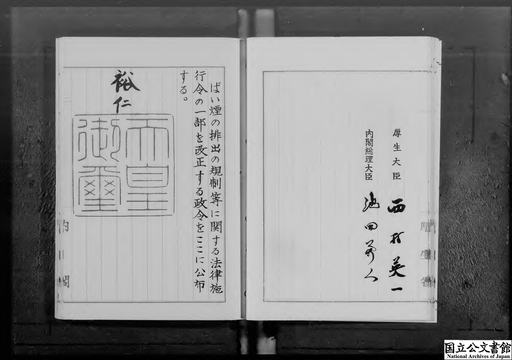 ばい煙の排出の規制等に関する法律施
行令の一部を改正する政令をここに公布
する。
裕仁
天皇
御璽
内閣
厚生大臣
西村英一
内閣総理大臣
池田勇人
厚生省
国立公文書館
National Archives of Japan